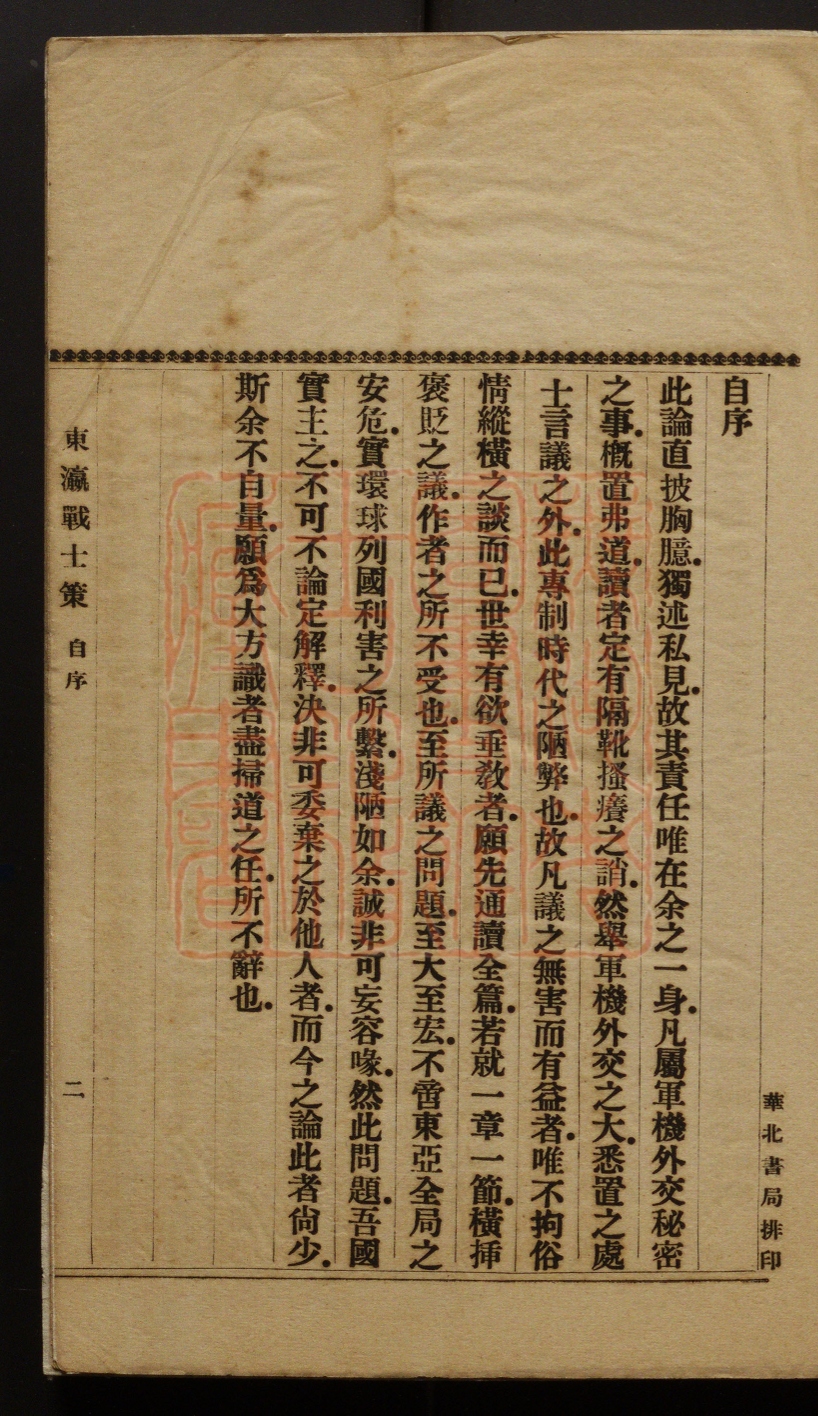 華北書局排印
自序
此論直披胸臆.獨述私見.故其責任唯在余之一身.凡屬軍機外交秘密
之事.槪置弗道.讀者定有隔靴搔癢之誚.然舉軍機外交之大.悉置之處
士言議之外.此專制時代之陋弊也.故凡議之無害而有益者.唯不拘俗
情縱橫之談而已.世幸有欲垂敎者.願先通讀全篇.若就一章一節.橫挿
褒貶之議.作者之所不受也.至所議之問題.至大至宏.不啻東亞全局之
安危.實環球列國利害之所繫.淺陋如余.誠非可妄容喙.然此問題.吾國
實主之.不可不論定解釋.決非可委棄之於他人者.而今之論此者尙少.
斯余不自量.願爲大方識者盡掃道之任.所不辭也.
東瀛戰士策 自序 二